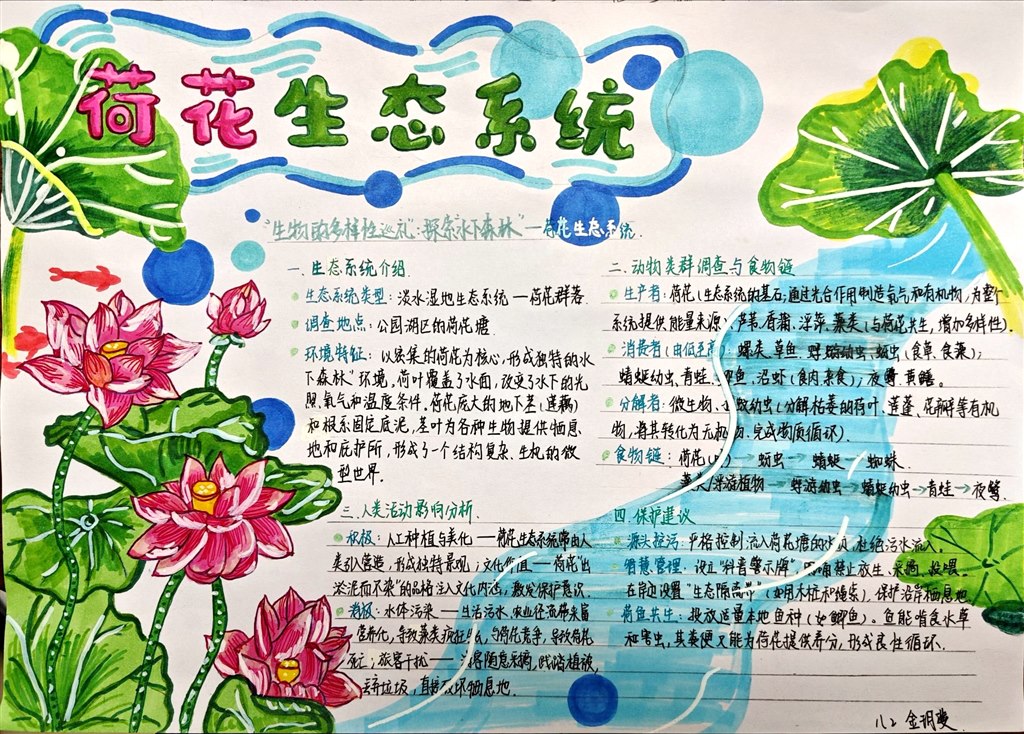 荷花生态系统
"生物多样性巡礼":探索"水下森林"—荷花生态系统.
一. 生态系统介绍.
生态系统类型: 淡水湿地生态系统 — 荷花群落.
调查地点: 公园湖区的荷花塘.
环境特征: 以密集的荷花为核心, 形成独特的"水
下森林"环境, 荷叶覆盖了水面, 改变了水下的光
照、氧气和温度条件. 荷花庞大的地下茎(莲藕)
和根系固定底泥, 茎叶为各种生物提供栖息
地和庇护所, 形成了一个结构复杂、生机的微
型世界.
二. 动物类群调查与食物链
生产者: 荷花(生态系统的基石, 通过光合作用制造氧气和有机物, 为整个
系统提供能量来源; 芦苇、香蒲、浮萍、藻类(与荷花共生, 增加多样性).
消费者(由低至高): 螺类、草鱼、蜉蝣幼虫、蚜虫(食草、食藻);
蜻蜓幼虫、青蛙、鱼、沼虾(食肉、杂食); 夜鹭、黄鳝.
分解者: 微生物、幼虫(分解枯萎的荷叶、莲蓬、花瓣等有机
物, 将其转化为无机物, 完成物质循环).
食物链: 荷花 → 蚜虫 → 蜻蜓 → 蜘蛛.
藻类/浮游植物 → 蜉蝣幼虫 → 蜻蜓幼虫 → 青蛙 → 夜鹭.
三. 人类活动影响分析.
积极: 人工种植与美化 — 荷花生态系统常由人
类引入营造, 形成独特景观; 文化价值 — 荷花"出
淤泥而不染"的品格注入文化内涵, 激发保护意识.
消极: 水体污染 — 生活污水、农业径流带来富
营养化, 导致藻类疯狂, 与荷花竞争, 导致荷花
死亡; 旅客干扰 — 游客随意采摘, 践踏植被,
丢弃垃圾, 直接破坏栖息地.
四. 保护建议
源头控污: 严格控制流入荷花塘的水质, 杜绝污水流入.
智慧管理: 设立"科普警示牌", 明确禁止放生、采摘、投喂.
在岸边设置"生态隔离带"(如用木桩和绳索), 保护沿岸栖息地.
荷鱼共生: 投放适量本地鱼种(如鲫鱼). 鱼能啃食水草
和害虫, 其粪便又能为荷花提供养分, 形成良性循环.
八2